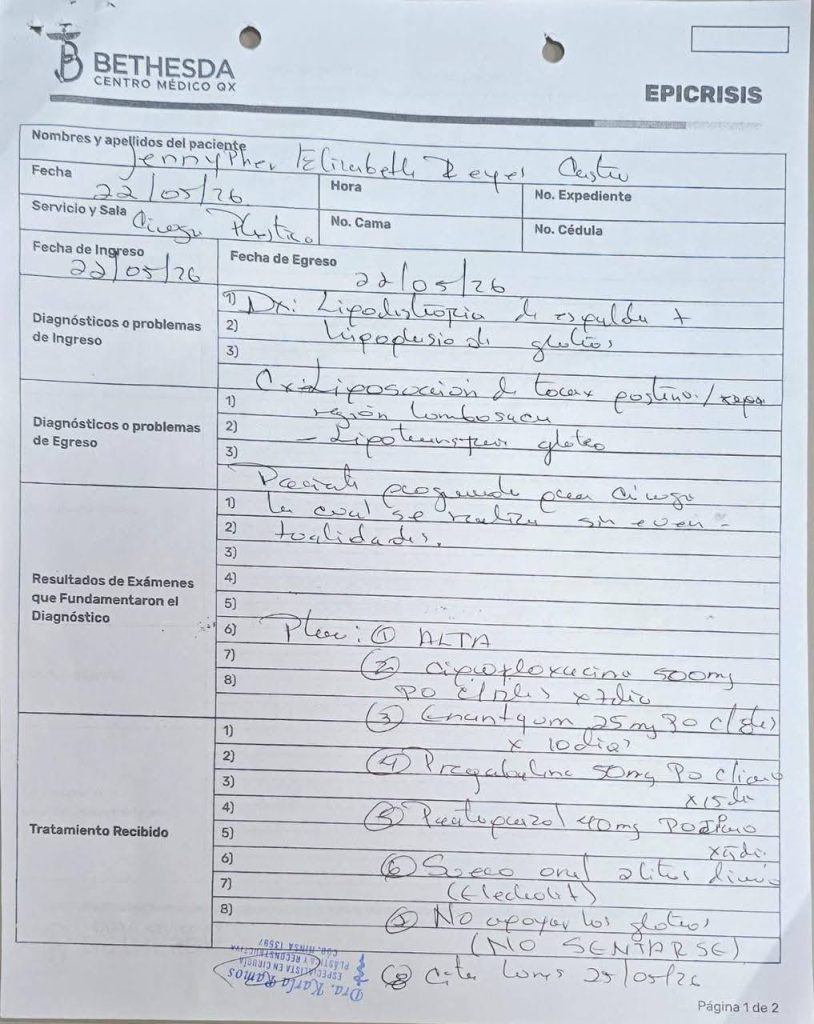 BETHESDA
CENTRO MÉDICO QX
EPICRISIS
Nombres y apellidos del paciente
Jennypher Elizabeth Reyes Castro
Fecha
22/05/26
Hora
No. Expediente
Servicio y Sala
No. Cama
No. Cédula
Fecha de Ingreso
22/05/26
Fecha de Egreso
22/05/26
Diagnósticos o problemas
de Ingreso
1) Dx: Lipodistrofia de espalda +
2) hipoplasia de gluteos
3)
Diagnósticos o problemas
de Egreso
Cx: Liposuccion de torax posterior/
1) región lumbosacra
2) - Lipotransfer gluteo
3)
Resultados de Exámenes
que Fundamentaron el
Diagnóstico
Paciente programada para cirugia
1) la cual se realiza sin even-
2) tualidades.
3)
4)
5)
6) Plan: ① ALTA
7) ② ciprofloxacina 500mg
8) PO x7dia
Tratamiento Recibido
③ Enantyum 25mg PO
1) x 10 dias
2) ④ Pregabalina 50mg PO
3) x15 di
4) ⑤ Pantoprazol 40mg PO
5)
6) ⑥ Suero oral 2 litros diario
7) (Electrolit)
8) No apoyar los gluteos
(NO SENTARSE)
⑧ Cita lunes 25/05/26
Dra. Karla Ramos
ESPECIALISTA EN CIRUGÍA
PLÁSTICA Y RECONSTRUCTIVA
CÓD. MINSA 13597
Página 1 de 2